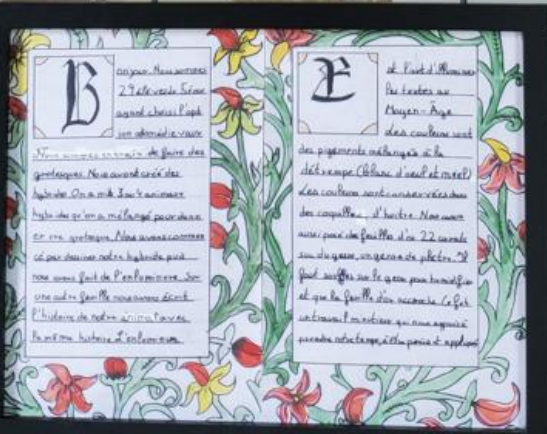 B
onjour. Nous sommes
29 élèves de 5ème
ayant choisi l'opt
ion
de faire des
grotesques. Nous avons créé des
hybrides. On a mis 3 ou 4 animaux
hybrides qu'on a mélangé pour
er une grotesque. Nous avons commen
cé par dessiner notre hybride puis
nous avons fait de l'enluminure. Sur
une autre feuille nous avons écrit
l'histoire de notre animal avec
la même histoire
E
st l'art d'
des textes au
Moyen-Âge
Les couleurs sont
des pigments mélangés à la
détrempe (blanc d'œuf et miel)
Les couleurs sont conservées dans
des coquilles d'huître. Nous avons
aussi posé des feuilles d'or 22 carats
sur du gesso, un genre de plâtre. Il
faut souffler sur le gesso pour
et que la feuille d'or accroche. Ce fut
un travail qui nous a appris à
prendre notre temps, à être